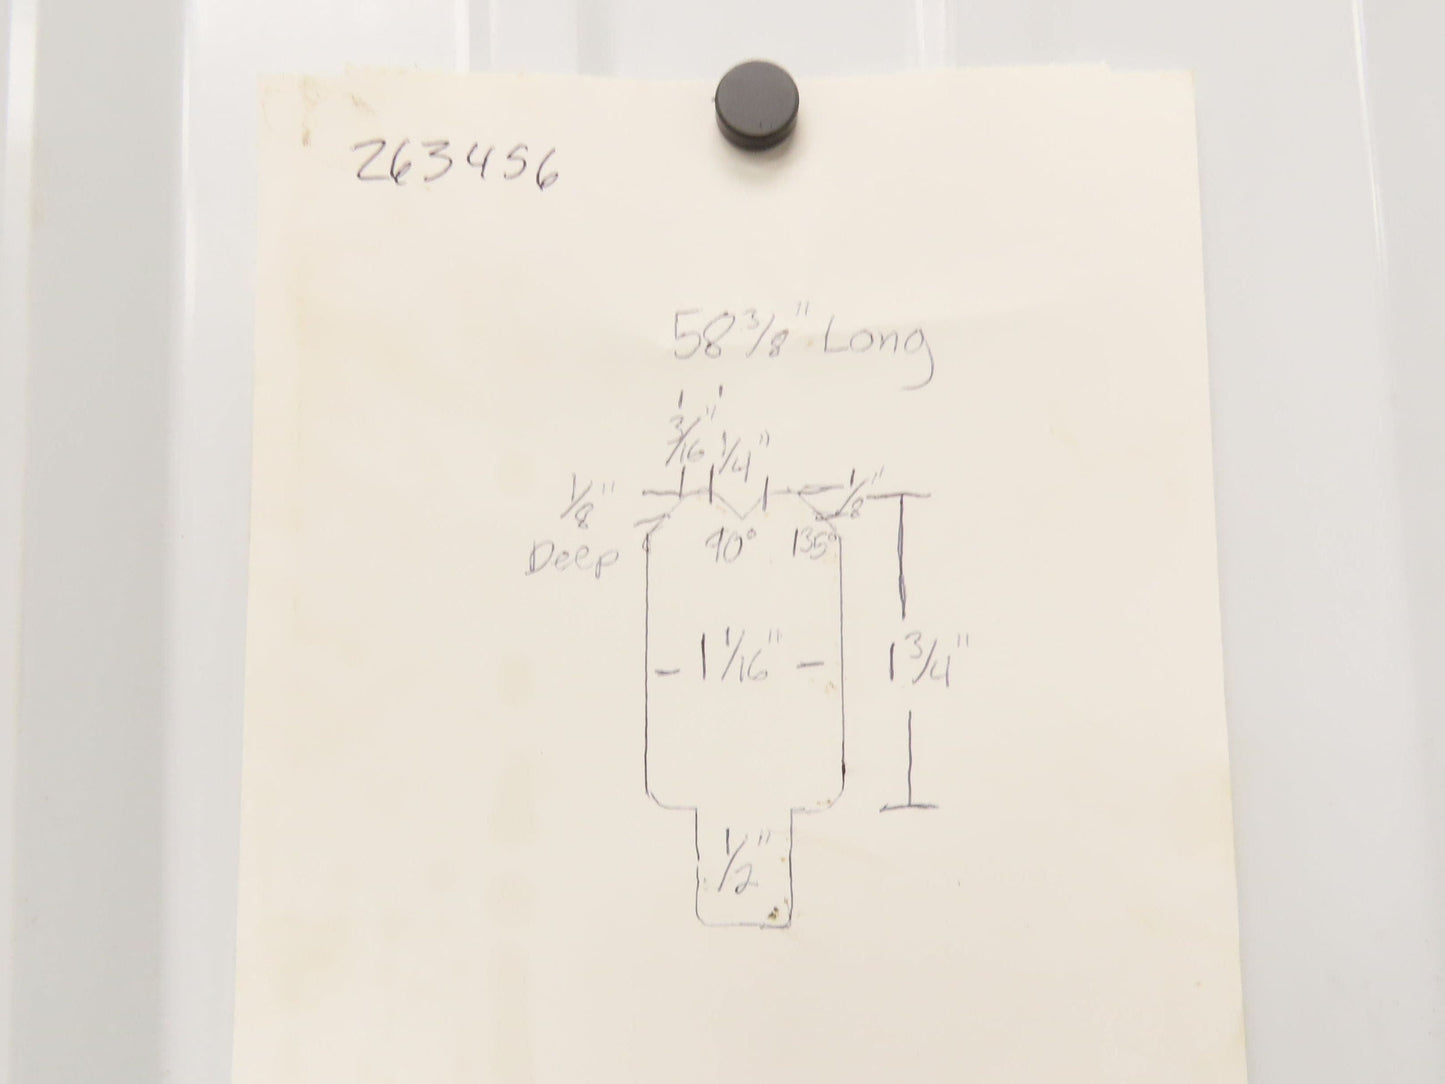 263456
58 3/8" Long
3/16" 1/4"
1/8" 1/8"
Deep 90° 135°
- 1 1/16" - 1 3/4"
1/2"